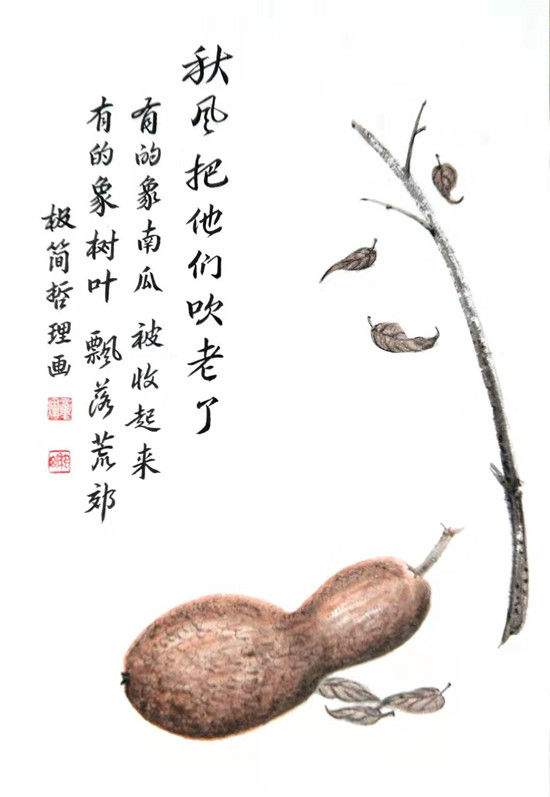 秋风把他们吹老了
有的象南瓜 被收起来
有的象树叶 飘落荒郊
极简哲理画